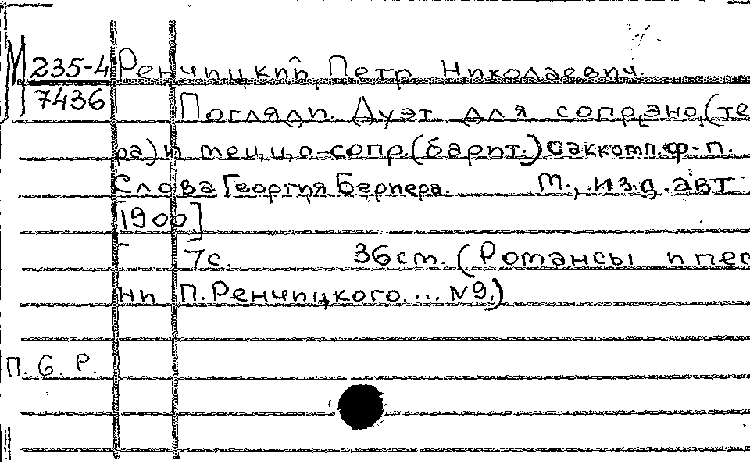 М 235-4 Ренчицкий, Петр Николаевич.
7436 Погляди. Дуэт для сопрано (те
ра) и меццо-сопр. (барит.) с аккомп. ф-п.
Слова Георгия Бернера. М., изд. авт
[1900]
7с. 36см. (Романсы и пес
ни П. Ренчицкого... №9.)
П. С. Р.